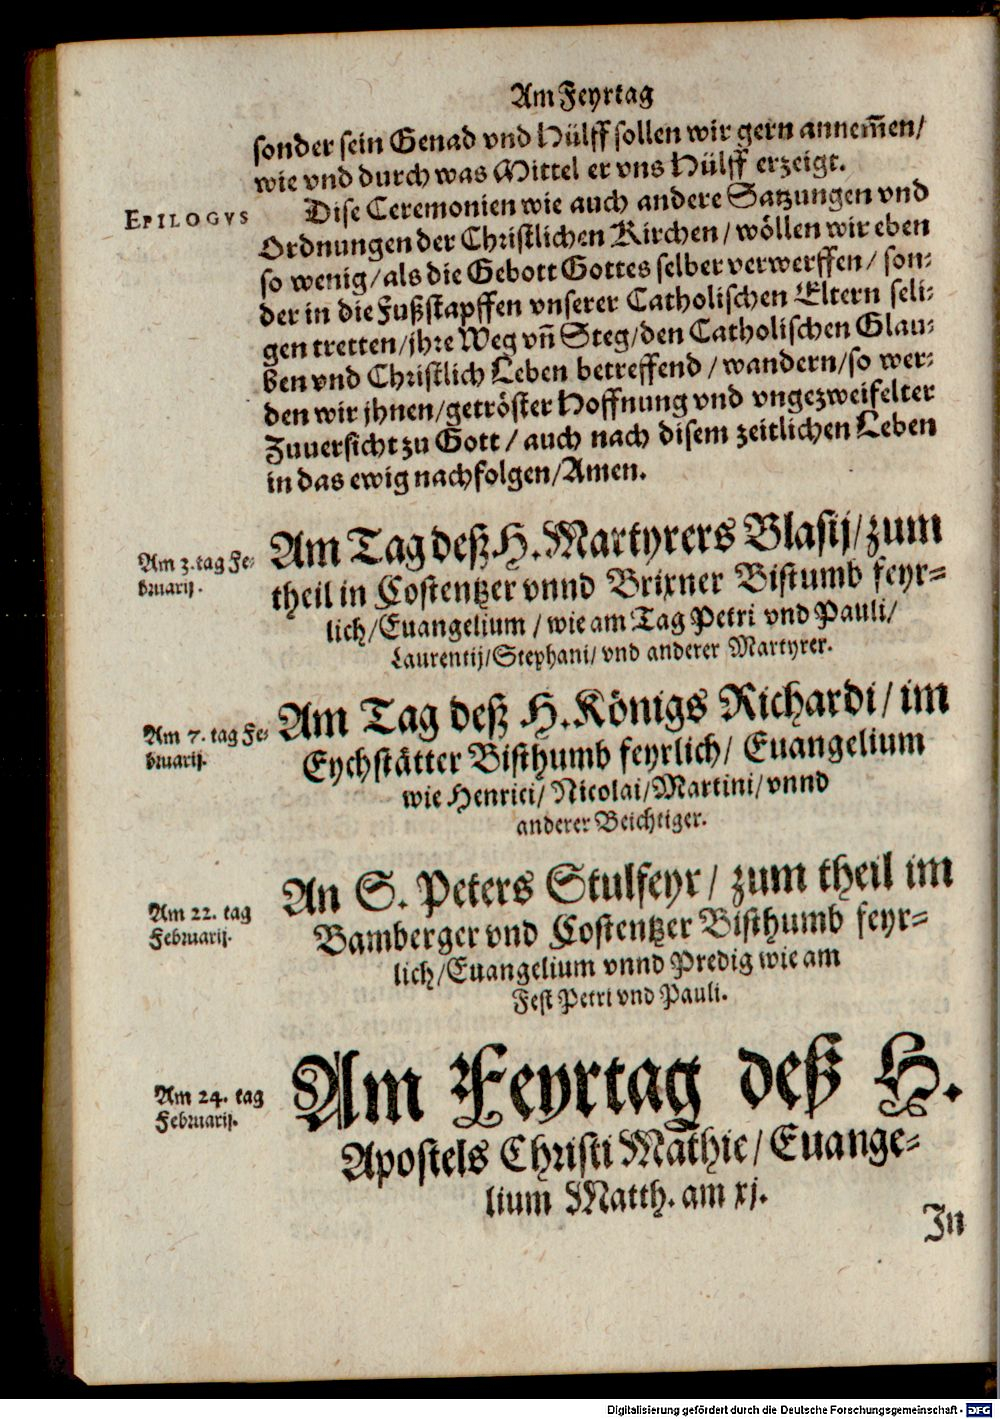 Am Feyrtag
sonder sein Genad vnd Hülff sollen wir gern annem̃en/
wie vnd durch was Mittel er vns Hülff erzeigt.
EPILOGVS
Dise Ceremonien wie auch andere Satzungen vnd
Ordnungen der Christlichen Kirchen/ wöllen wir eben
so wenig/ als die Gebott Gottes selber verwerffen/ son-
der in die Fußstapffen vnserer Catholischen Eltern seli-
gen tretten/ jhre Weg vñ Steg/ den Catholischen Glau-
ben vnd Christlich Leben betreffend/ wandern/ so wer-
den wir jhnen/ getröster Hoffnung vnd vngezweifelter
Zuuersicht zu Gott/ auch nach disem zeitlichen Leben
in das ewig nachfolgen/ Amen.
Am 3. tag Fe-
bruarij.
Am Tag deß H. Martyrers Blasij/ zum
theil in Costentzer vnnd Brixner Bistumb feyr-
lich/ Euangelium/ wie am Tag Petri vnd Pauli/
Laurentij/ Stephani/ vnd anderer Martyrer.
Am 7. tag Fe-
bruarij.
Am Tag deß H. Königs Richardi/ im
Eychstätter Bisthumb feyrlich/ Euangelium
wie Henrici/ Nicolai/ Martini/ vnnd
anderer Beichtiger.
Am 22. tag
Februarij.
An S. Peters Stulfeyr/ zum theil im
Bamberger vnd Costentzer Bisthumb feyr-
lich/ Euangelium vnnd Predig wie am
Fest Petri vnd Pauli.
Am 24. tag
Februarij.
Am Feyrtag deß H.
Apostels Christi Mathie/ Euange-
lium Matth. am xj.
In
Digitalisierung gefördert durch die Deutsche Forschungsgemeinschaft - DFG